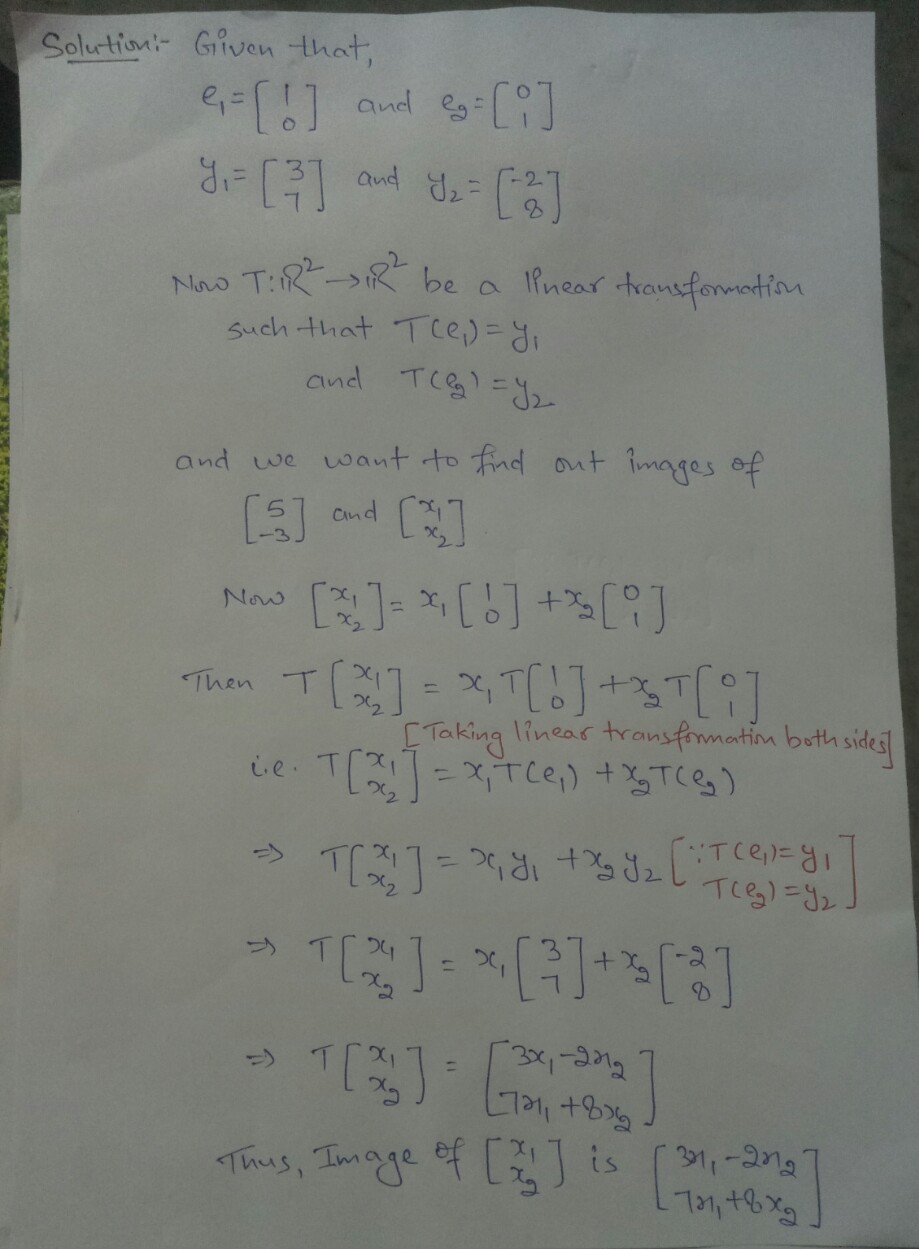 Solution:- Given that,
e₁ = [1 0] and e₂ = [0 1]
y₁ = [3 7] and y₂ = [-2 8]
Now T: ℝ² → ℝ² be a linear transformation
such that T(e₁) = y₁
and T(e₂) = y₂
and we want to find out images of
[5 -3] and [x₁ x₂]
Now [x₁ x₂] = x₁ [1 0] + x₂ [0 1]
Then T [x₁ x₂] = x₁ T [1 0] + x₂ T [0 1]
[Taking linear transformation both sides]
i.e. T [x₁ x₂] = x₁ T(e₁) + x₂ T(e₂)
⇒ T [x₁ x₂] = x₁ y₁ + x₂ y₂ [∵ T(e₁) = y₁ T(e₂) = y₂]
⇒ T [x₁ x₂] = x₁ [3 7] + x₂ [-2 8]
⇒ T [x₁ x₂] = [3x₁ - 2x₂ 7x₁ + 8x₂]
Thus, Image of [x₁ x₂] is [3x₁ - 2x₂ 7x₁ + 8x₂]